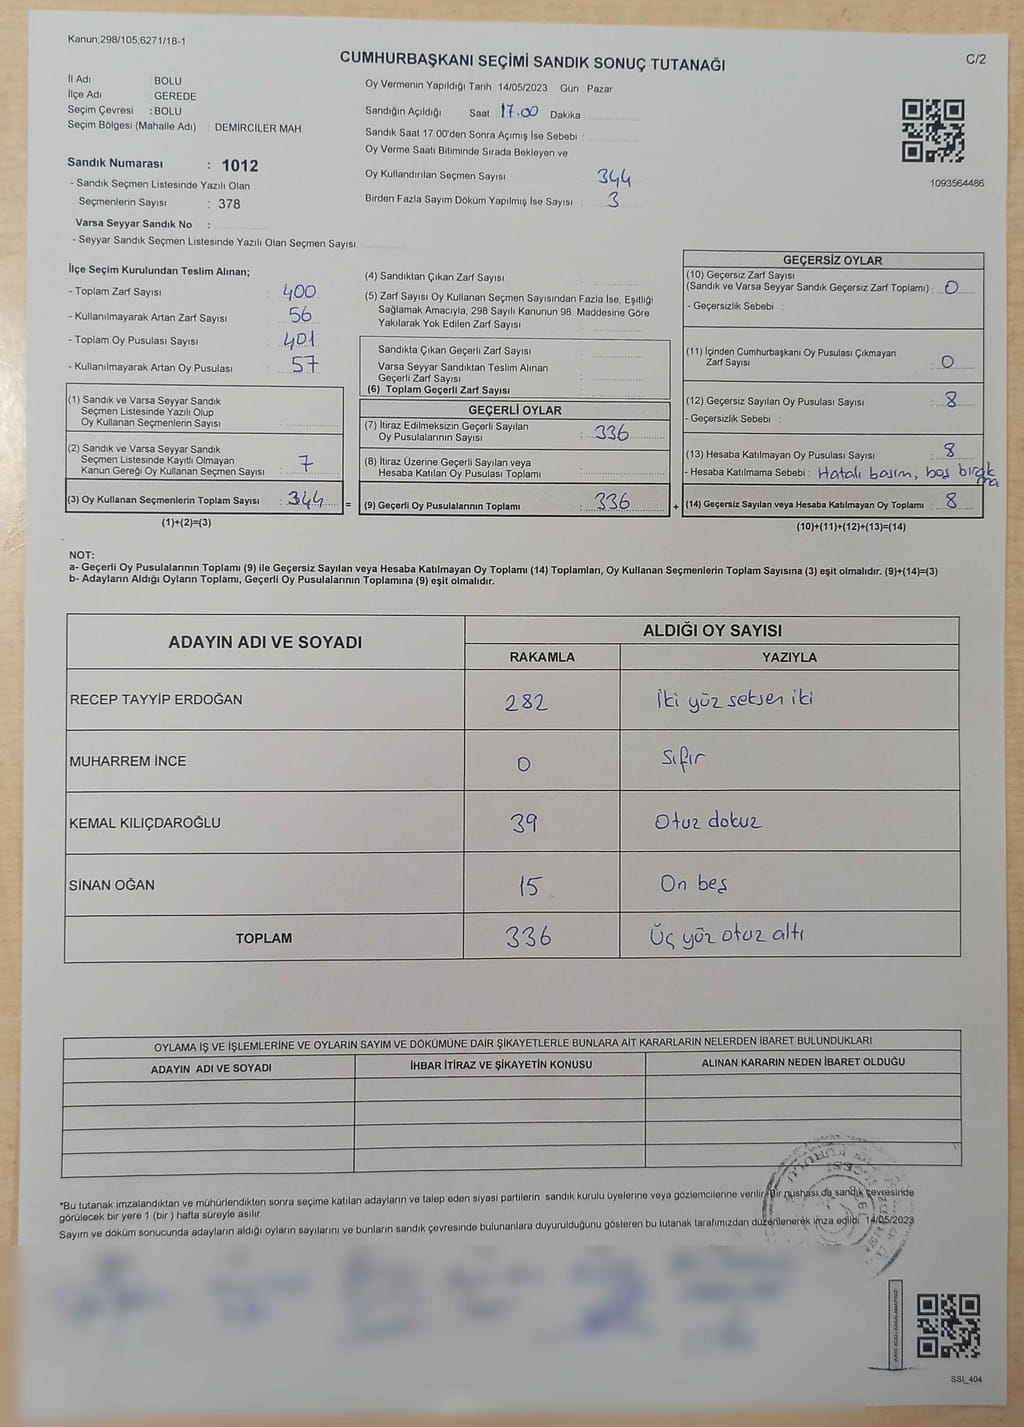 Kanun,298/105,6271/18-1
CUMHURBAŞKANI SEÇİMİ SANDIK SONUÇ TUTANAĞI
C/2
İl Adı : BOLU
İlçe Adı : GEREDE
Seçim Çevresi : BOLU
Seçim Bölgesi (Mahalle Adı) DEMİRCİLER MAH
Sandık Numarası : 1012
- Sandık Seçmen Listesinde Yazılı Olan
Seçmenlerin Sayısı : 378
Varsa Seyyar Sandık No :
- Seyyar Sandık Seçmen Listesinde Yazılı Olan Seçmen Sayısı
Oy Vermenin Yapıldığı Tarih 14/05/2023 Gün Pazar
Sandığın Açıldığı Saat 17.00 Dakika
Sandık Saat 17.00'den Sonra Açımış İse Sebebi :
Oy Verme Saati Bitiminde Sırada Bekleyen ve
Oy Kullandırılan Seçmen Sayısı : 344
Birden Fazla Sayım Döküm Yapılmış İse Sayısı : 3
1093564486
İlçe Seçim Kurulundan Teslim Alınan;
- Toplam Zarf Sayısı : 400
- Kullanılmayarak Artan Zarf Sayısı : 56
- Toplam Oy Pusulası Sayısı : 401
- Kullanılmayarak Artan Oy Pusulası : 57
(1) Sandık ve Varsa Seyyar Sandık
Seçmen Listesinde Yazılı Olup
Oy Kullanan Seçmenlerin Sayısı :
(2) Sandık ve Varsa Seyyar Sandık
Seçmen Listesinde Kayıtlı Olmayan
Kanun Gereği Oy Kullanan Seçmen Sayısı : 7
(3) Oy Kullanan Seçmenlerin Toplam Sayısı : 344 =
(1)+(2)=(3)
(4) Sandıktan Çıkan Zarf Sayısı :
(5) Zarf Sayısı Oy Kullanan Seçmen Sayısından Fazla İse, Eşitliği
Sağlamak Amacıyla, 298 Sayılı Kanunun 98. Maddesine Göre
Yakılarak Yok Edilen Zarf Sayısı :
Sandıkta Çıkan Geçerli Zarf Sayısı :
Varsa Seyyar Sandıktan Teslim Alınan
Geçerli Zarf Sayısı :
(6) Toplam Geçerli Zarf Sayısı :
GEÇERLİ OYLAR
(7) İtiraz Edilmeksizin Geçerli Sayılan
Oy Pusulalarının Sayısı : 336
(8) İtiraz Üzerine Geçerli Sayılan veya
Hesaba Katılan Oy Pusulası Toplamı :
(9) Geçerli Oy Pusulalarının Toplamı : 336 +
GEÇERSİZ OYLAR
(10) Geçersiz Zarf Sayısı
(Sandık ve Varsa Seyyar Sandık Geçersiz Zarf Toplamı) : 0
- Geçersizlik Sebebi :
(11) İçinden Cumhurbaşkanı Oy Pusulası Çıkmayan
Zarf Sayısı : 0
(12) Geçersiz Sayılan Oy Pusulası Sayısı : 8
- Geçersizlik Sebebi :
(13) Hesaba Katılmayan Oy Pusulası Sayısı : 8
- Hesaba Katılmama Sebebi : Hatalı basım, boş bırakma
(14) Geçersiz Sayılan veya Hesaba Katılmayan Oy Toplamı : 8
(10)+(11)+(12)+(13)=(14)
NOT:
a- Geçerli Oy Pusulalarının Toplamı (9) ile Geçersiz Sayılan veya Hesaba Katılmayan Oy Toplamı (14) Toplamları, Oy Kullanan Seçmenlerin Toplam Sayısına (3) eşit olmalıdır. (9)+(14)=(3)
b- Adayların Aldığı Oyların Toplamı, Geçerli Oy Pusulalarının Toplamına (9) eşit olmalıdır.
ADAYIN ADI VE SOYADI
ALDIĞI OY SAYISI
RAKAMLA YAZIYLA
RECEP TAYYİP ERDOĞAN 282 İki yüz seksen iki
MUHARREM İNCE 0 Sıfır
KEMAL KILIÇDAROĞLU 39 Otuz dokuz
SİNAN OĞAN 15 On beş
TOPLAM 336 Üç yüz otuz altı
OYLAMA İŞ VE İŞLEMLERİNE VE OYLARIN SAYIM VE DÖKÜMÜNE DAİR ŞİKAYETLERLE BUNLARA AİT KARARLARIN NELERDEN İBARET BULUNDUKLARI
ADAYIN ADI VE SOYADI İHBAR İTİRAZ VE ŞİKAYETİN KONUSU ALINAN KARARIN NEDEN İBARET OLDUĞU
*Bu tutanak imzalandıktan ve mühürlendikten sonra seçime katılan adayların ve talep eden siyasi partilerin sandık kurulu üyelerine veya gözlemcilerine verilir. Bir nüshası da sandık çevresinde
görülecek bir yere 1 (bir) hafta süreyle asılır.
Sayım ve döküm sonucunda adayların aldığı oyların sayılarını ve bunların sandık çevresinde bulunanlara duyurulduğunu gösteren bu tutanak tarafımızdan düzenlenerek imza edildi. 14/05/2023
SSI_404